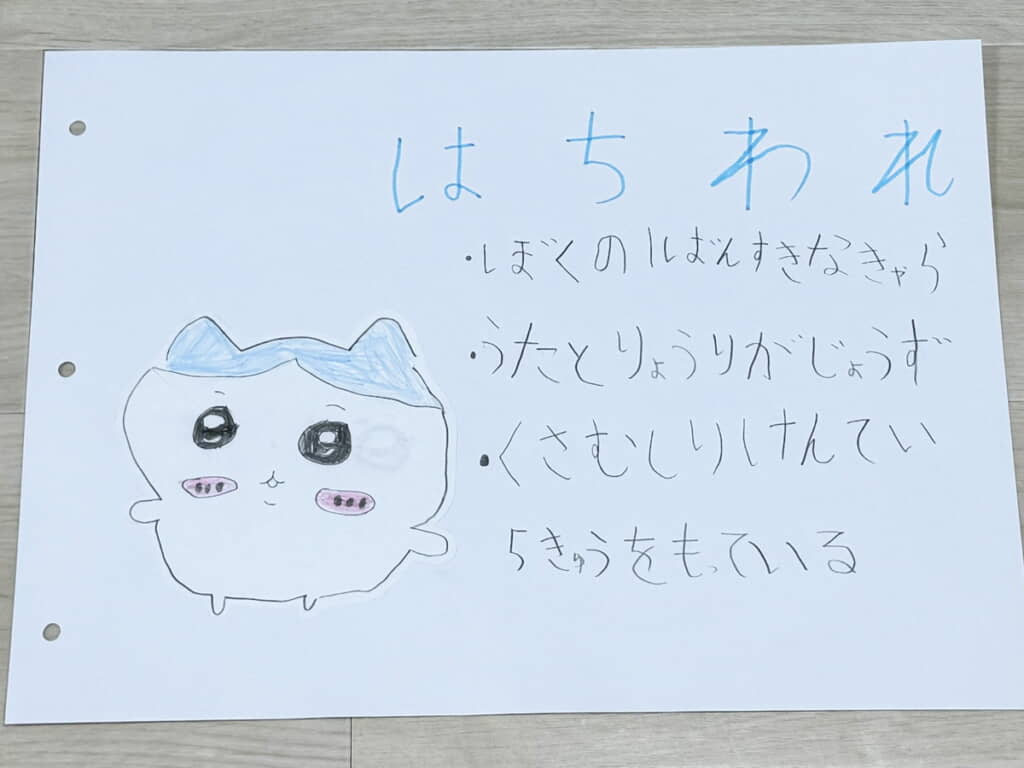 はちわれ
・ぼくの1ばんすきなきゃら
・うたとりょうりがじょうず
・くさむしりけんてい
5きゅうをもっている